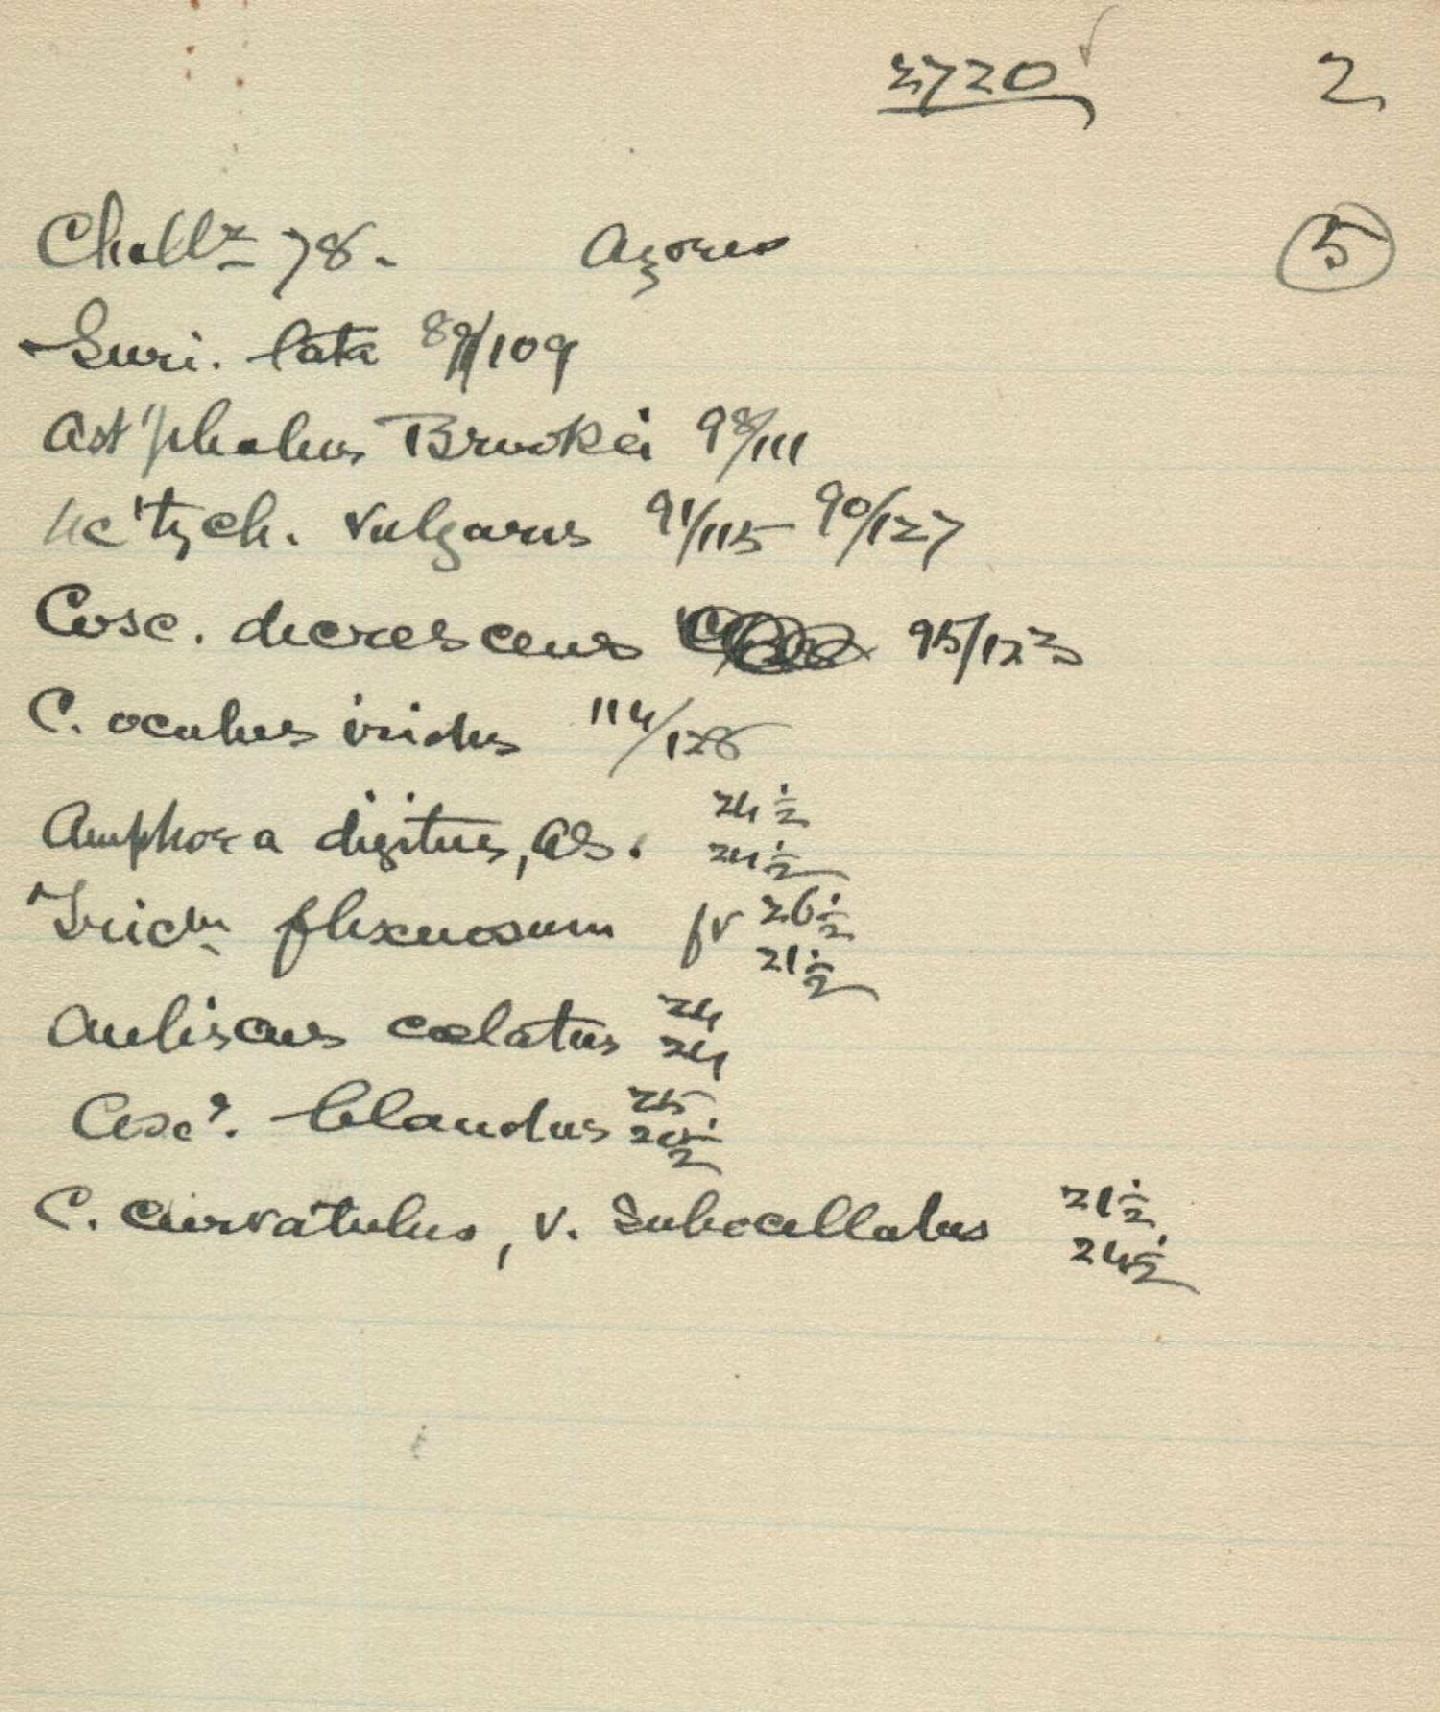 2720 2
Challr 78. Açores 5
Suri. lata 89/109
Ast'phalus Brookei 98/111
Ac'tych. vulgaris 91/115 90/127
Cosc. decrescens 95/123
C. oculus iridis 114/128
Amphora digitus, AS. 24½
24½
Tricm flexuosum fv 26½
21½
Auliscus cælatus 24
24
Coscs. blandus 25
20½
C. curvatulus, v. subocellatus 21½
24½